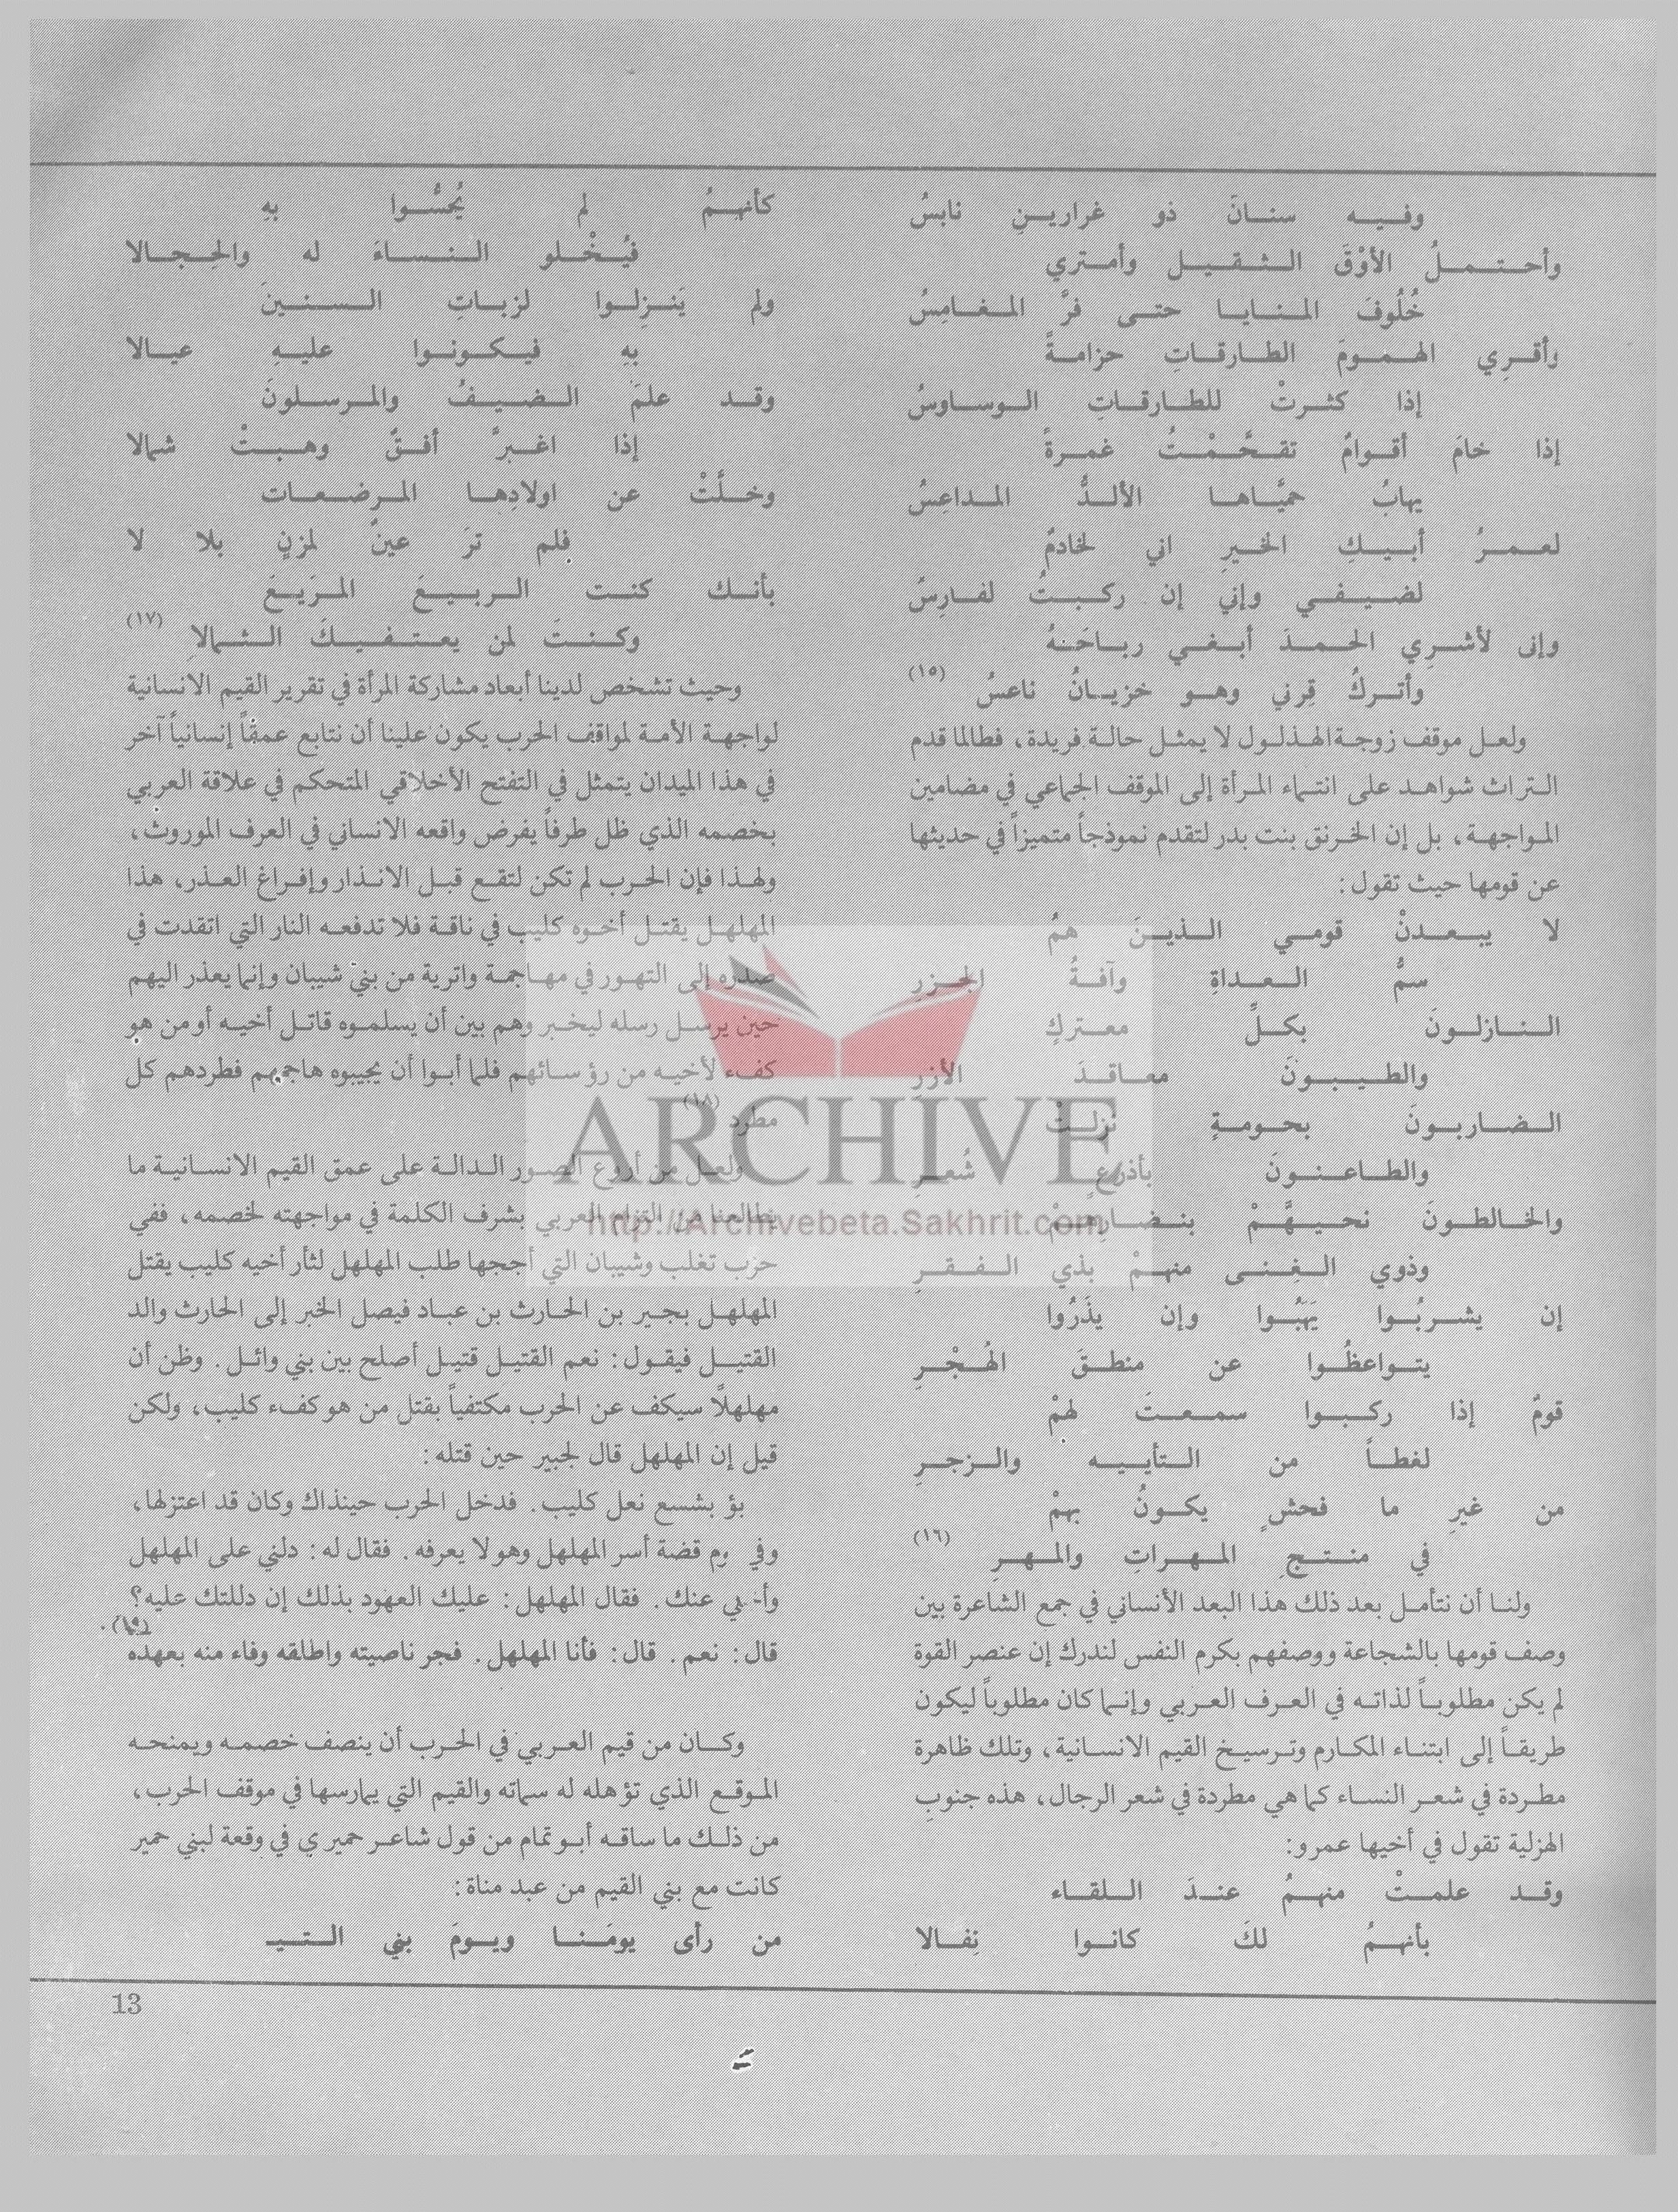 وفيه سنانَ ذو غرارينِ نابسُ
وأحتملُ الأوْقَ الثقيل وأمتري
خُلُوفَ المنايا حتى فرَّ المغامِسُ
وأقرِي الهمومَ الطارقاتِ حزامةً
إذا كثرتْ للطارقاتِ الوساوسُ
إذا خامَ أقوامٌ تقحَّمْتُ غمرةً
يهابُ حميَّاها الألدُّ المداعِسُ
لعمرُ أبيكِ الخيرِ اني لخادمٌ
لضيفي وإني إن ركبتُ لفارِسُ
وإنى لأشرِي الحمدَ أبغي رباحَنهُ
وأتركُ قِرني وهو خزيانُ ناعسُ (١٥)
ولعل موقف زوجة الهذلول لا يمثل حالة فريدة، فطالما قدم
التراث شواهد على انتماء المرأة إلى الموقف الجماعي في مضامين
المواجهة، بل إن الخرنق بنت بدر لتقدم نموذجاً متميزاً في حديثها
عن قومها حيث تقول:
لا يبعدنْ قومي الذينَ همُ
سمُّ العداةِ وآفةُ الجزرِ
النازلونَ بكلِّ معتركٍ
والطيبونَ معاقدَ الأزرِ
الضاربونَ بحومةٍ نزلتْ
والطاعنونَ بأذرعٍ شُعرِ
والخالطونَ نحيهَّمْ بنضارِهمْ
وذوي الغِنى منهمْ بذي الفقرِ
إن يشربُوا يَهَبُوا وإن يذَرُوا
يتواعظُوا عن منطقَ الهُجْرِ
قومٌ إذا ركبوا سمعتَ لهمْ
لغطاً من التأييه والزجرِ
من غيرِ ما فحشٍ يكونُ بهمْ
في منتجِ المهراتِ والمهرِ (١٦)
ولنا أن نتأمل بعد ذلك هذا البعد الأنساني في جمع الشاعرة بين
وصف قومها بالشجاعة ووصفهم بكرم النفس لندرك إن عنصر القوة
لم يكن مطلوباً لذاته في العرف العربي وإنما كان مطلوباً ليكون
طريقاً إلى ابتناء المكارم وترسيخ القيم الانسانية، وتلك ظاهرة
مطردة في شعر النساء كما هي مطردة في شعر الرجال، هذه جنوبِ
الهزلية تقول في أخيها عمرو:
وقد علمتْ منهمُ عندَ اللقاء
بأنهمُ لكَ كانوا نِفالا
كأنهمُ لم يُحسُّوا بهِ
فيُخْلو النساءَ له والحِجالا
ولم يَنزِلوا لزباتِ السنينَ
بهِ فيكونوا عليهِ عيالا
وقد علمَ الضيفُ والمرسلونَ
إذا اغبرَّ أفقٌ وهبتْ شمالا
وخلَّتْ عن اولادِها المرضعات
فلم ترَ عينٌ لمزنٍ بلا لا
بأنك كنت الربيعَ المَرَيعَ
وكنتَ لمن يعتفيكَ الثمالاِ (١٧)
وحيث تشخص لدينا أبعاد مشاركة المرأة في تقرير القيم الانسانية
لواجهة الأمة لمواقف الحرب يكون علينا أن نتابع عمقاً إنسانياً آخر
في هذا الميدان يتمثل في التفتح الأخلاقي المتحكم في علاقة العربي
بخصمه الذي ظل طرفاً يفرض واقعه الانساني في العرف الموروث،
ولهذا فإن الحرب لم تكن لتقع قبل الانذار وإفراغ العذر، هذا
المهلهل يقتل أخوه كليب في ناقة فلا تدفعه النار التي اتقدت في
صدره إلى التهور في مهاجمة واترية من بني شيبان وإنما يعذر اليهم
حين يرسل رسله ليخبر وهم بين أن يسلموه قاتل أخيه أو من هو
كفء لأخيه من رؤسائهم فلما أبوا أن يجيبوه هاجمهم فطردهم كل
مطرد (١٨)
ولعل من أروع الصور الدالة على عمق القيم الانسانية ما
يطالعنا من التزام العربي بشرف الكلمة في مواجهته لخصمه، ففي
حرب تغلب وشيبان التي أججها طلب المهلهل لثأر أخيه كليب يقتل
المهلهل بجير بن الحارث بن عباد فيصل الخبر إلى الحارث والد
القتيل فيقول: نعم القتيل قتيل أصلح بين بني وائل. وظن أن
مهلهلاً سيكف عن الحرب مكتفياً بقتل من هو كفء كليب، ولكن
قيل إن المهلهل قال لجبير حين قتله:
بؤ بشسع نعل كليب. فدخل الحرب حينذاك وكان قد اعتزلها،
وفي وم قضة أسر المهلهل وهو لا يعرفه. فقال له: دلني على المهلهل
عنك. فقال المهلهل: عليك العهود بذلك إن دللتك عليه؟
قال: نعم. قال: فأنا المهلهل. فجر ناصيته واطلقه وفاء منه بعهده (١٩).
وكان من قيم العربي في الحرب أن ينصف خصمه ويمنحه
الموقع الذي تؤهله له سماته والقيم التي يمارسها في موقف الحرب،
من ذلك ما ساقه أبو تمام من قول شاعر حميري في وقعة لبني حمير
كانت مع بني القيم من عبد مناة:
من رأى يومَنا ويومَ بني التيـ
13
ARCHIVE
http://Archivebeta.Sakhrit.com